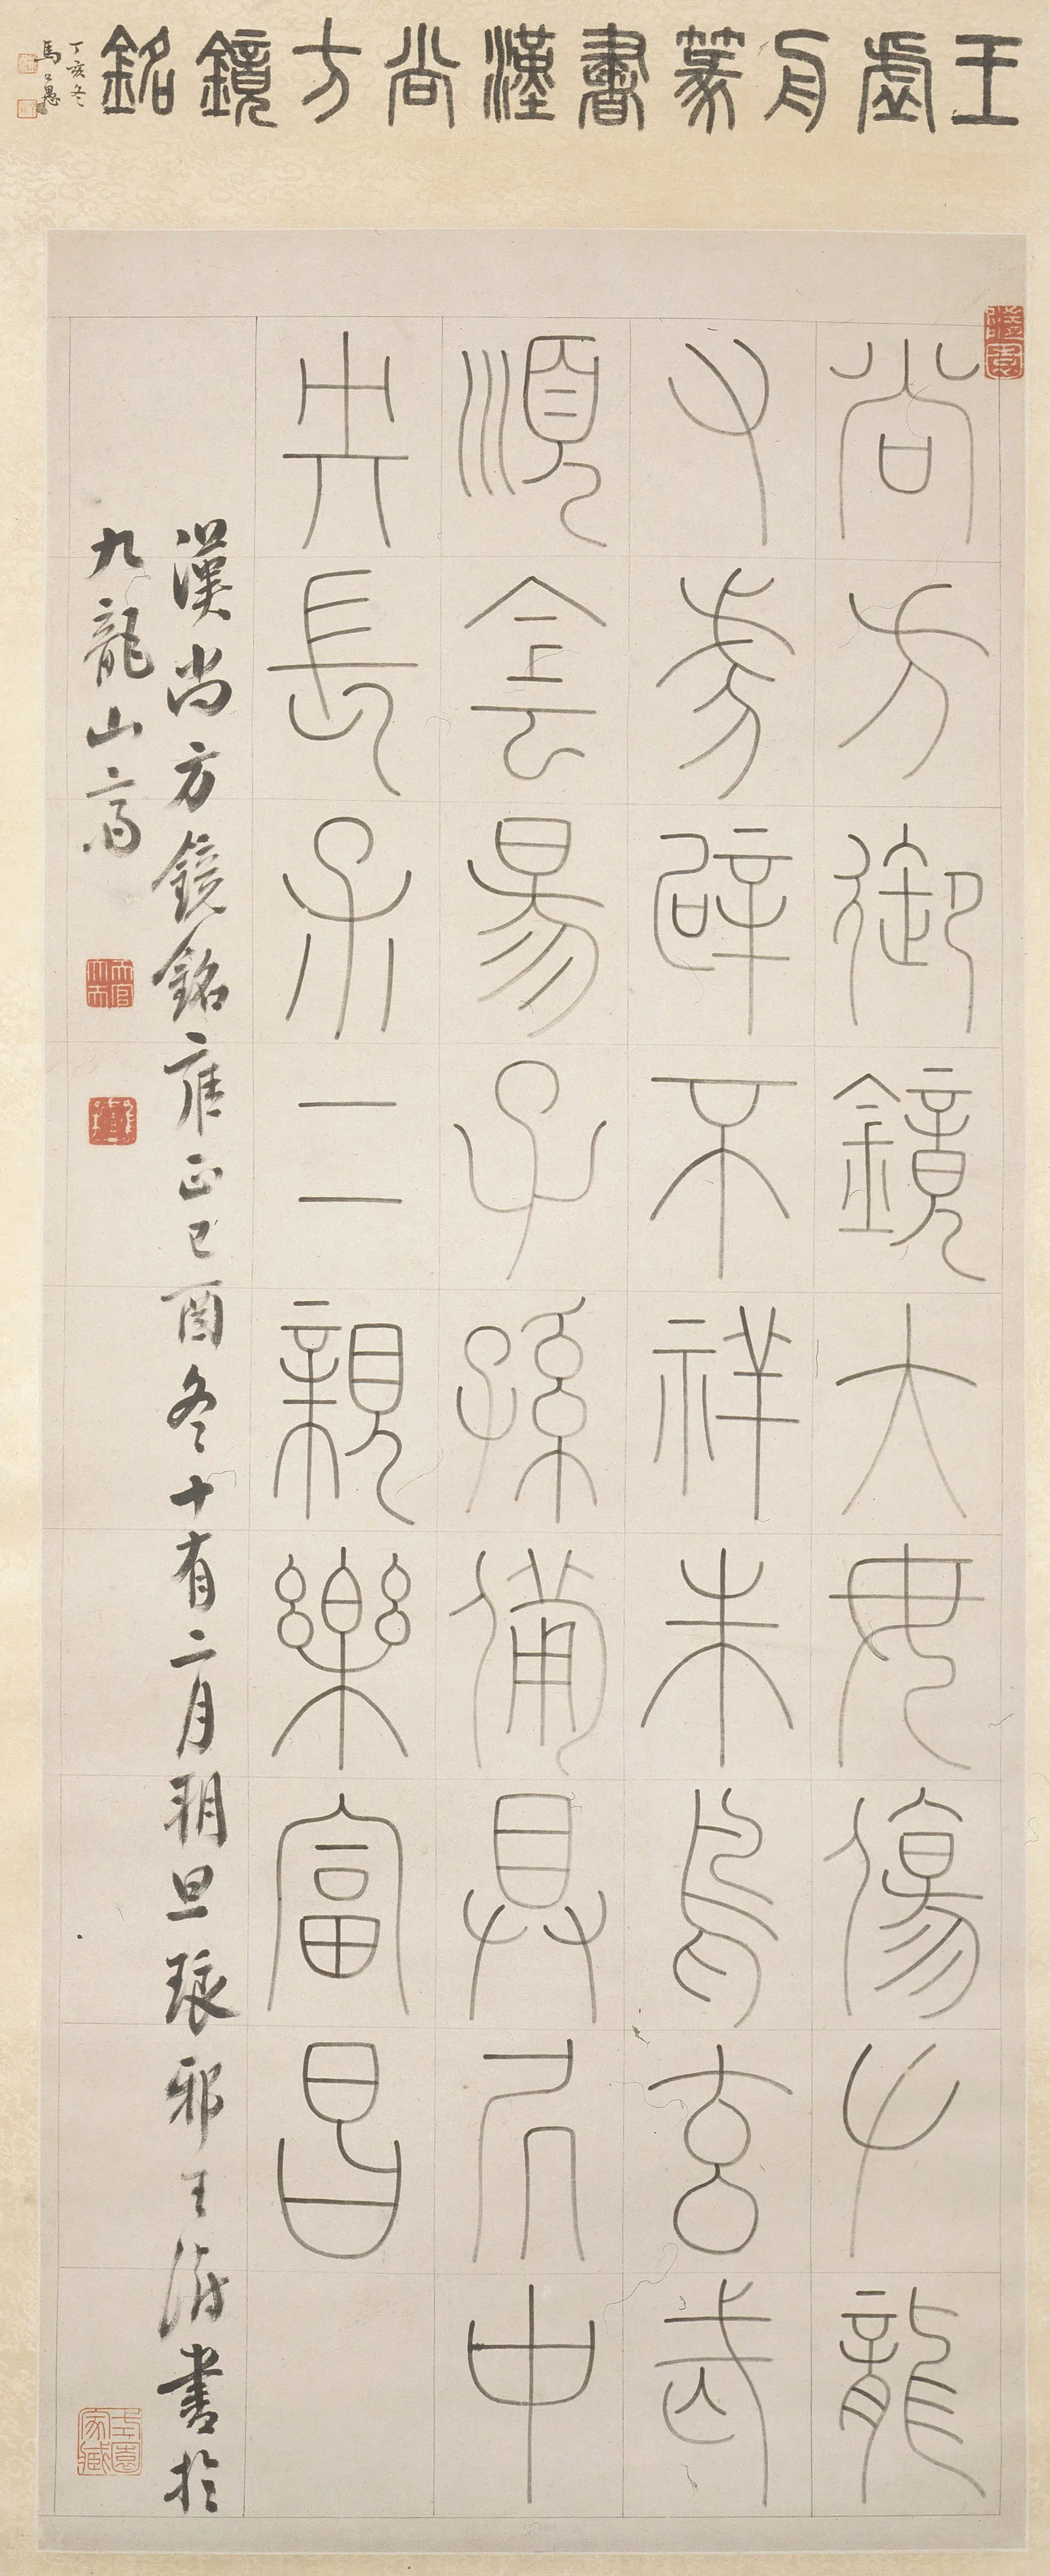 王虛舟篆書漢尚方鏡銘
丁亥冬
馬公愚
尚方御鏡大毋傷𠂇龍
又虎辟不祥朱鳥玄武
順侌昜子孫備具凥中
央長呆二親樂富昌
漢尚方鏡銘雍正己酉冬十有二月朔旦琅邪王澍書於
九龍山齋